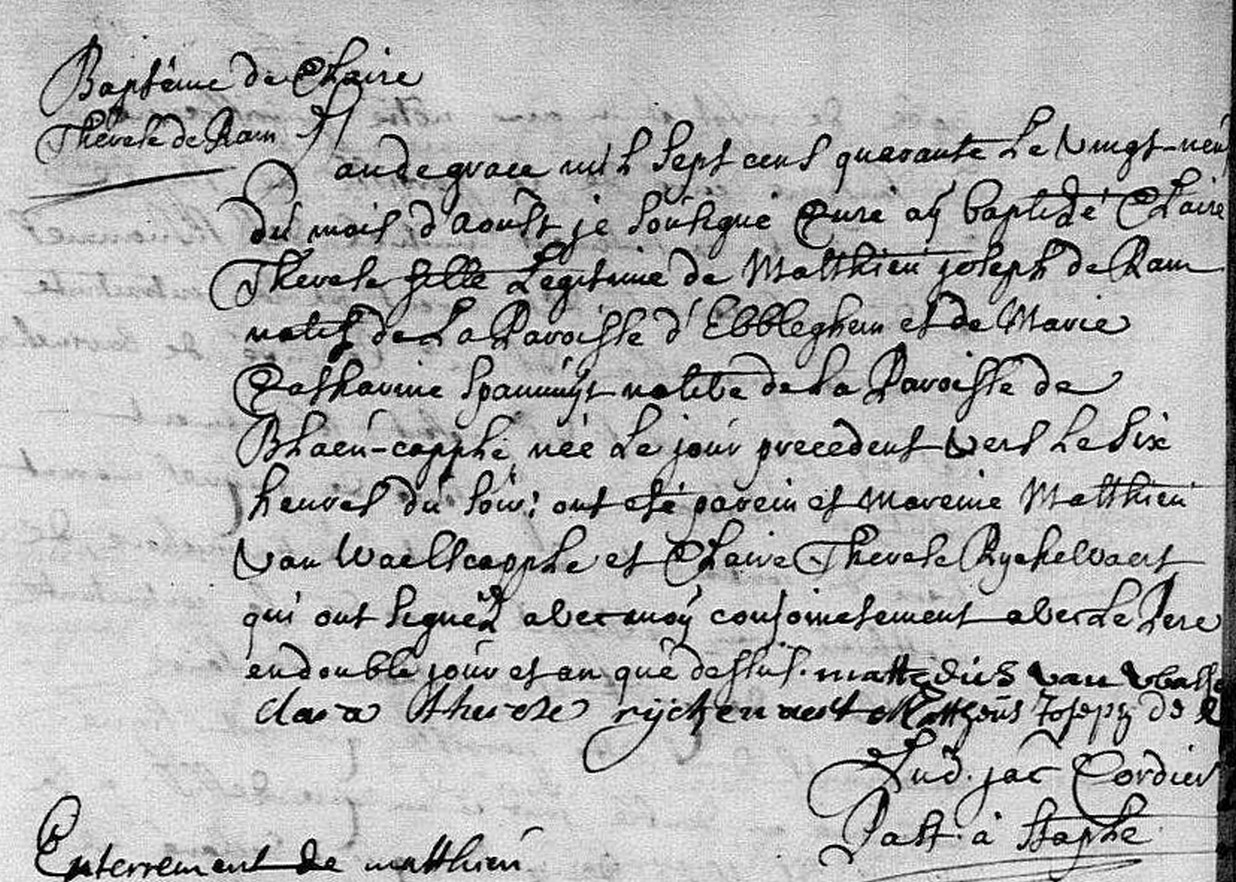 Baptême de Claire
Therese de Ram
L'an de grace mil sept cens quarante le vingt-neu
du mois d'aoust je soûsigné Curé aÿ baptisé Claire
Therese fille Legitime de Matthieu joseph de Ram
natif de La Paroisse d'Ebbleghem et de Marie
Catharine Spannüÿt natibe de La Paroisse de
Blaeu-capple née Le jour precedent vers Le Six
heures du soir; ont eté parein et Mareine Matthieu
van Waellscapple et Claire Therese Ryckelvaert
qui ont signéz avec moÿ conjointement avec Le Pere
en double jour et an que dessus. mattheus van wals
clara therese rijckewaert Mattheus Joseph de R
Lud. jac Cordier
Past. à Staple
Enterrement de matthieu